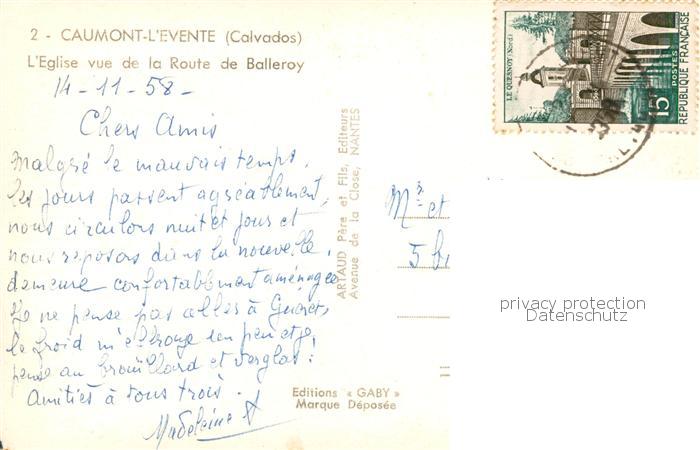 2 - CAUMONT-L'EVENTE (Calvados)
L'Eglise vue de la Route de Balleroy
14-11-58-
Chers Amis
Malgré le mauvais temps,
les jours passent agréablement,
nous circulons nuit et jour et
nous reposons dans la nouvelle
demeure confortablement aménagée
Je ne pense pas aller à Guéret,
le froid m'effraye un peu et je
pense au brouillard et verglas!
Amitiés à tous trois.
Madeleine
ARTAUD Père et Fils, Editeurs
Avenue de la Close, NANTES
Editions « GABY »
Marque Déposée
LE QUESNOY (Nord)
15F
POSTES
REPUBLIQUE FRANÇAISE
Mr et
5
privacy protection
Datenschutz